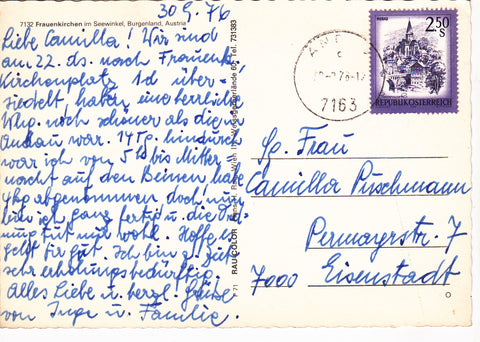 30.9.76
7132 Frauenkirchen im Seewinkel, Burgenland, Austria
Liebe Camilla! Wir sind
am 22. ds. nach Frauenk.
Kirchenplatz 1d über-
siedelt, haben eine herrliche
Whg. noch schöner als die in
Andau war. 14 Tg. hindurch
war ich von 5h bis Mitter-
nacht auf den Beinen, habe
4kg abgenommen doch nun
bin ich ganz fertig u. die
tut mir wohl. Hoffe es
geht Dir gut. Ich bin z. Zt.
sehr erholungsbedürftig.
Alles Liebe u. herzl. Grüße
von Inge u. Familie.
RAUCOLOR Wien
Tel. 731383
F 71
7163
2.50 S
MURAU
REPUBLIK ÖSTERREICH
Sg. Frau
Camilla Puschmann
Permayerstr. 7
7000 Eisenstadt